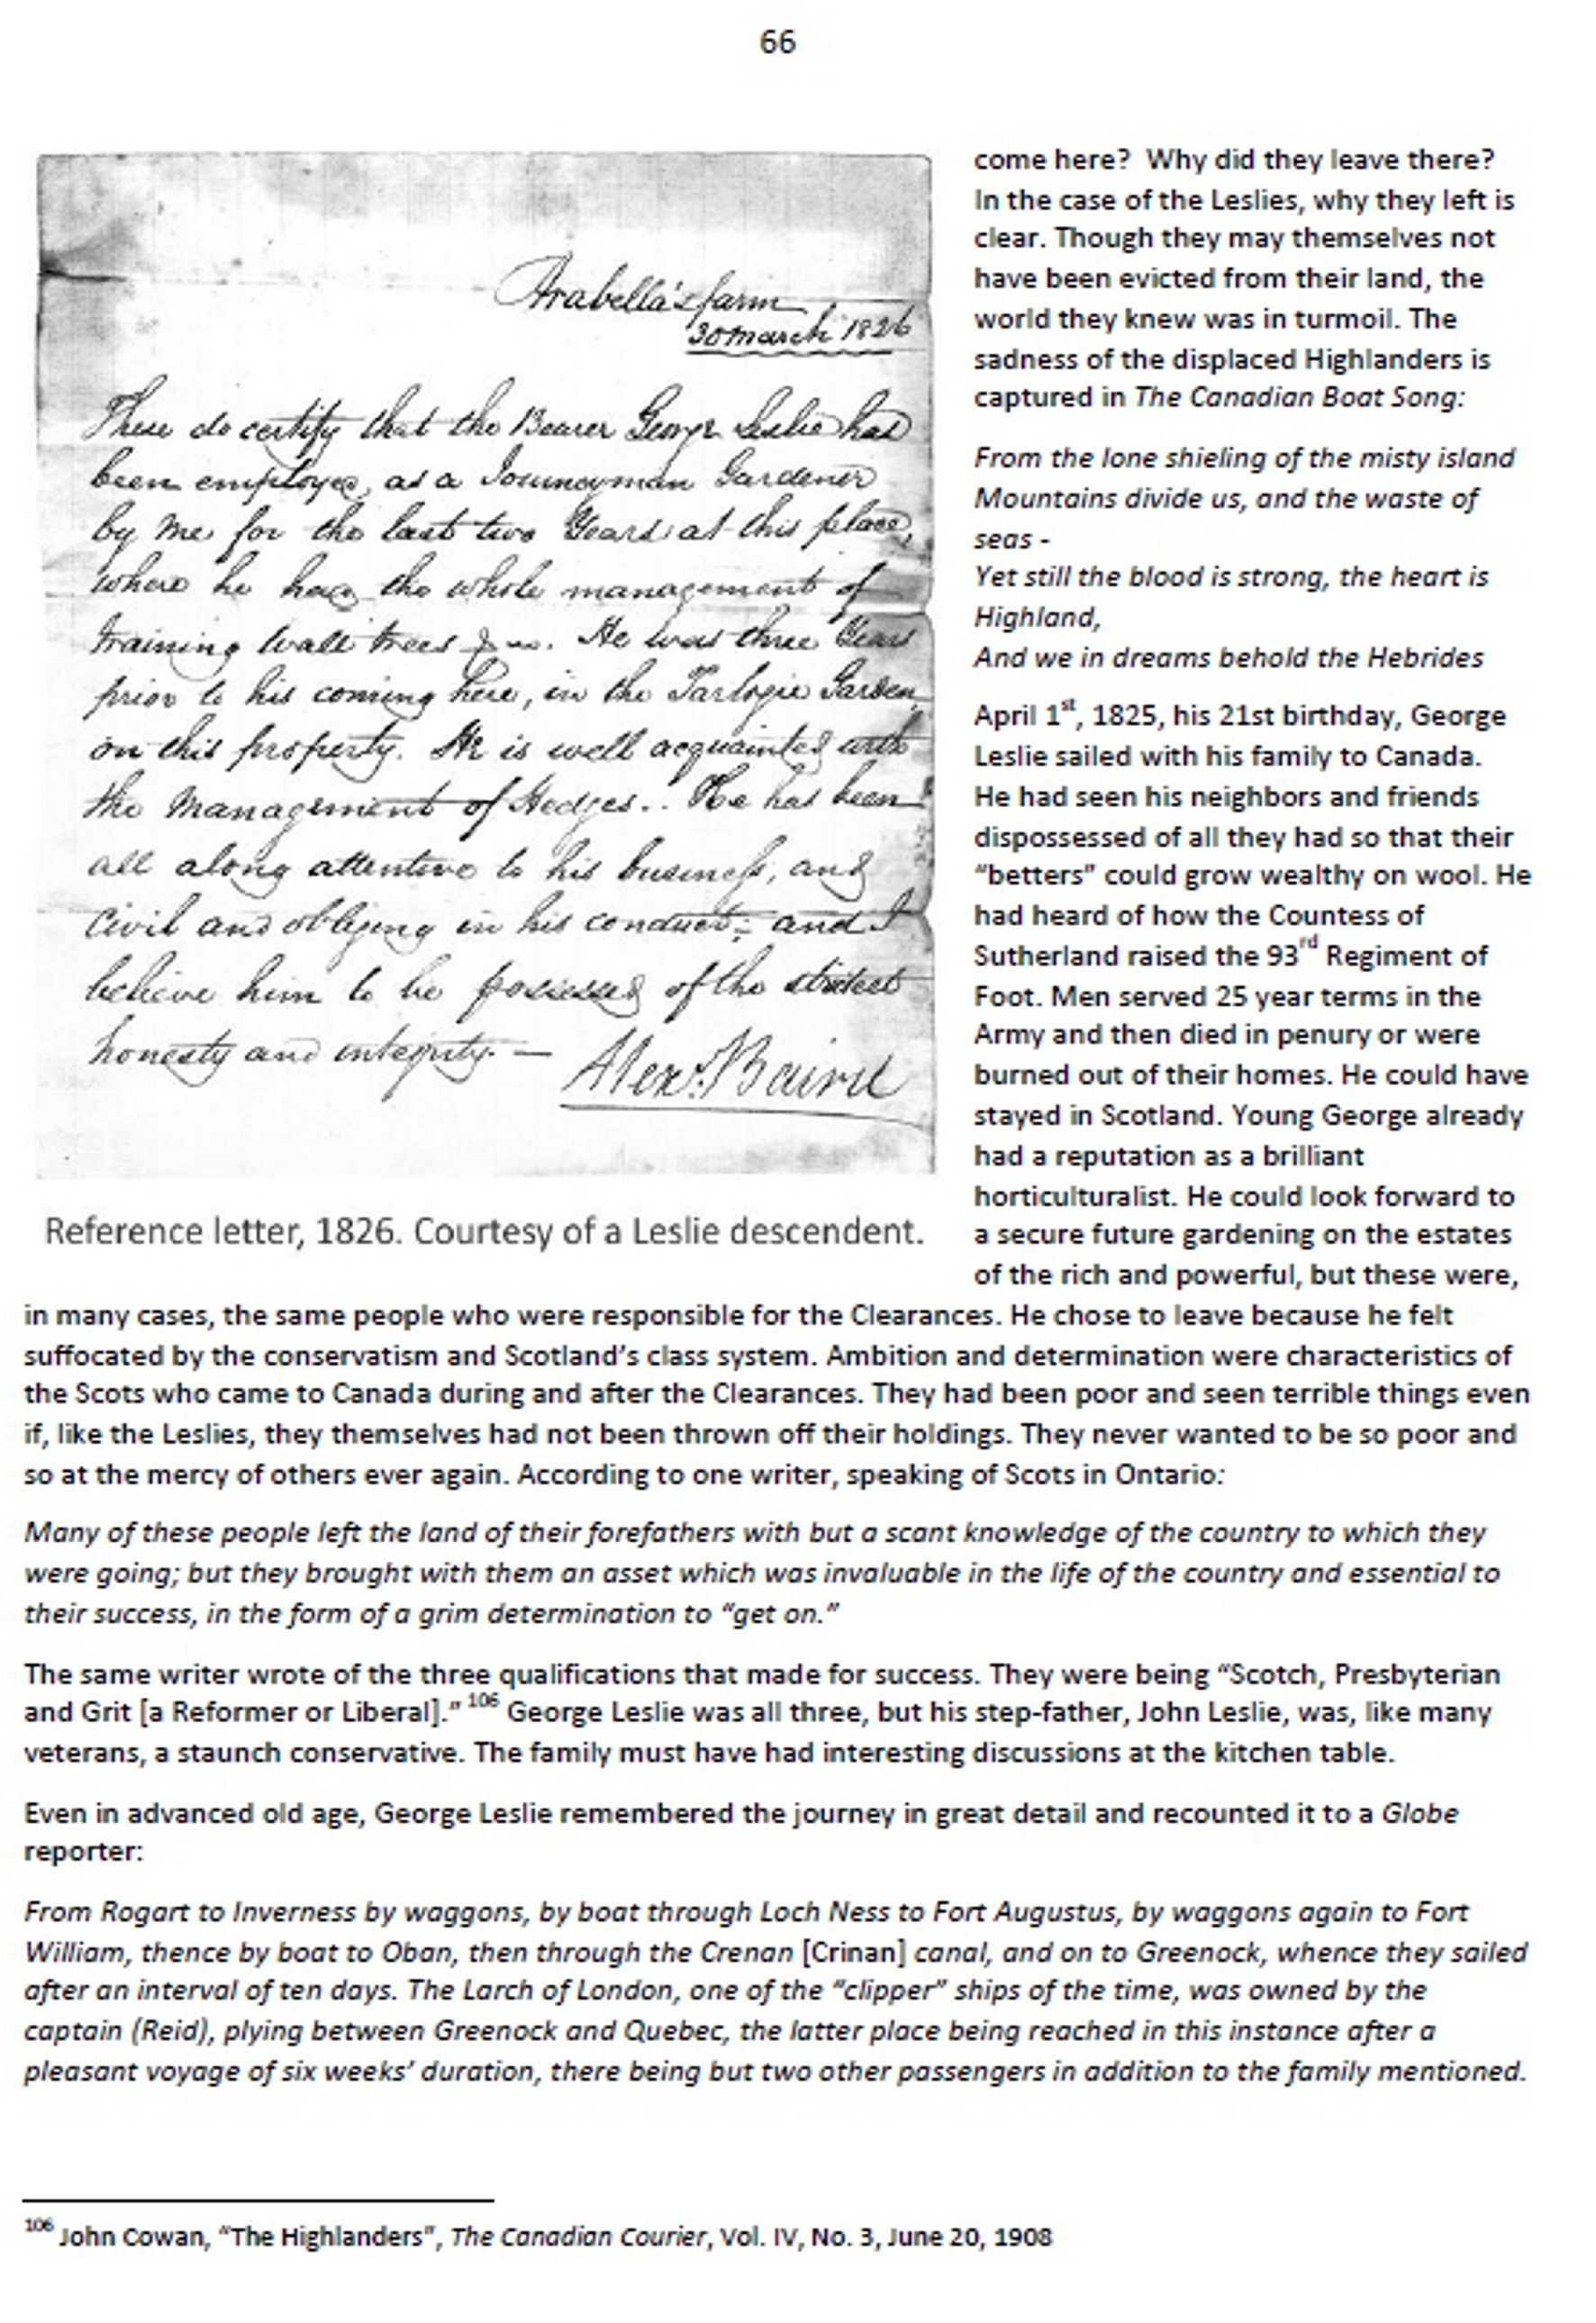 66
Arabella's farm
30 march 1826
These do certify that the Bearer George Leslie has
been employed, as a Journeyman Gardener
by me for the last two Years at this place,
where he had the whole management of
training wall trees &c. He was three Years
prior to his coming here, in the Tarlogie Garden
on this property. He is well acquainted with
the Management of Hedges.. He has been
all along attentive to his business, and
Civil and obliging in his conduct; and I
believe him to be possessed of the strictest
honesty and integrity. —
Alexr. Baird
Reference letter, 1826. Courtesy of a Leslie descendent.
come here?  Why did they leave there?
In the case of the Leslies, why they left is
clear. Though they may themselves not
have been evicted from their land, the
world they knew was in turmoil. The
sadness of the displaced Highlanders is
captured in The Canadian Boat Song:
From the lone shieling of the misty island
Mountains divide us, and the waste of
seas -
Yet still the blood is strong, the heart is
Highland,
And we in dreams behold the Hebrides
April 1st, 1825, his 21st birthday, George
Leslie sailed with his family to Canada.
He had seen his neighbors and friends
dispossessed of all they had so that their
“betters” could grow wealthy on wool. He
had heard of how the Countess of
Sutherland raised the 93rd Regiment of
Foot. Men served 25 year terms in the
Army and then died in penury or were
burned out of their homes. He could have
stayed in Scotland. Young George already
had a reputation as a brilliant
horticulturalist. He could look forward to
a secure future gardening on the estates
of the rich and powerful, but these were,
in many cases, the same people who were responsible for the Clearances. He chose to leave because he felt
suffocated by the conservatism and Scotland’s class system. Ambition and determination were characteristics of
the Scots who came to Canada during and after the Clearances. They had been poor and seen terrible things even
if, like the Leslies, they themselves had not been thrown off their holdings. They never wanted to be so poor and
so at the mercy of others ever again. According to one writer, speaking of Scots in Ontario:
Many of these people left the land of their forefathers with but a scant knowledge of the country to which they
were going; but they brought with them an asset which was invaluable in the life of the country and essential to
their success, in the form of a grim determination to “get on.”
The same writer wrote of the three qualifications that made for success. They were being “Scotch, Presbyterian
and Grit [a Reformer or Liberal].” 106 George Leslie was all three, but his step-father, John Leslie, was, like many
veterans, a staunch conservative. The family must have had interesting discussions at the kitchen table.
Even in advanced old age, George Leslie remembered the journey in great detail and recounted it to a Globe
reporter:
From Rogart to Inverness by waggons, by boat through Loch Ness to Fort Augustus, by waggons again to Fort
William, thence by boat to Oban, then through the Crenan [Crinan] canal, and on to Greenock, whence they sailed
after an interval of ten days. The Larch of London, one of the “clipper” ships of the time, was owned by the
captain (Reid), plying between Greenock and Quebec, the latter place being reached in this instance after a
pleasant voyage of six weeks’ duration, there being but two other passengers in addition to the family mentioned.
106 John Cowan, “The Highlanders”, The Canadian Courier, Vol. IV, No. 3, June 20, 1908